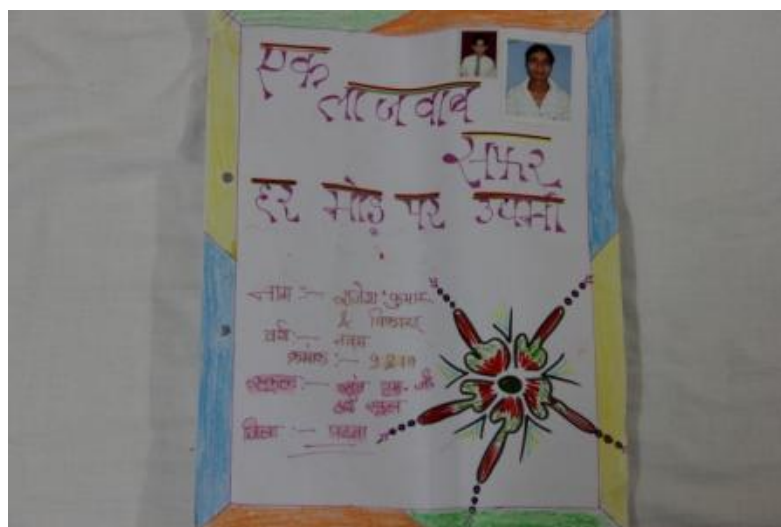 एक
लाजवाब
सफर
हर मोड़ पर उद्यमी
नाम :- राजेश कुमार
& विकास
वर्ग :- नवम
क्रमांक :-
स्कूल :-
हाई स्कूल
जिला :- पटना